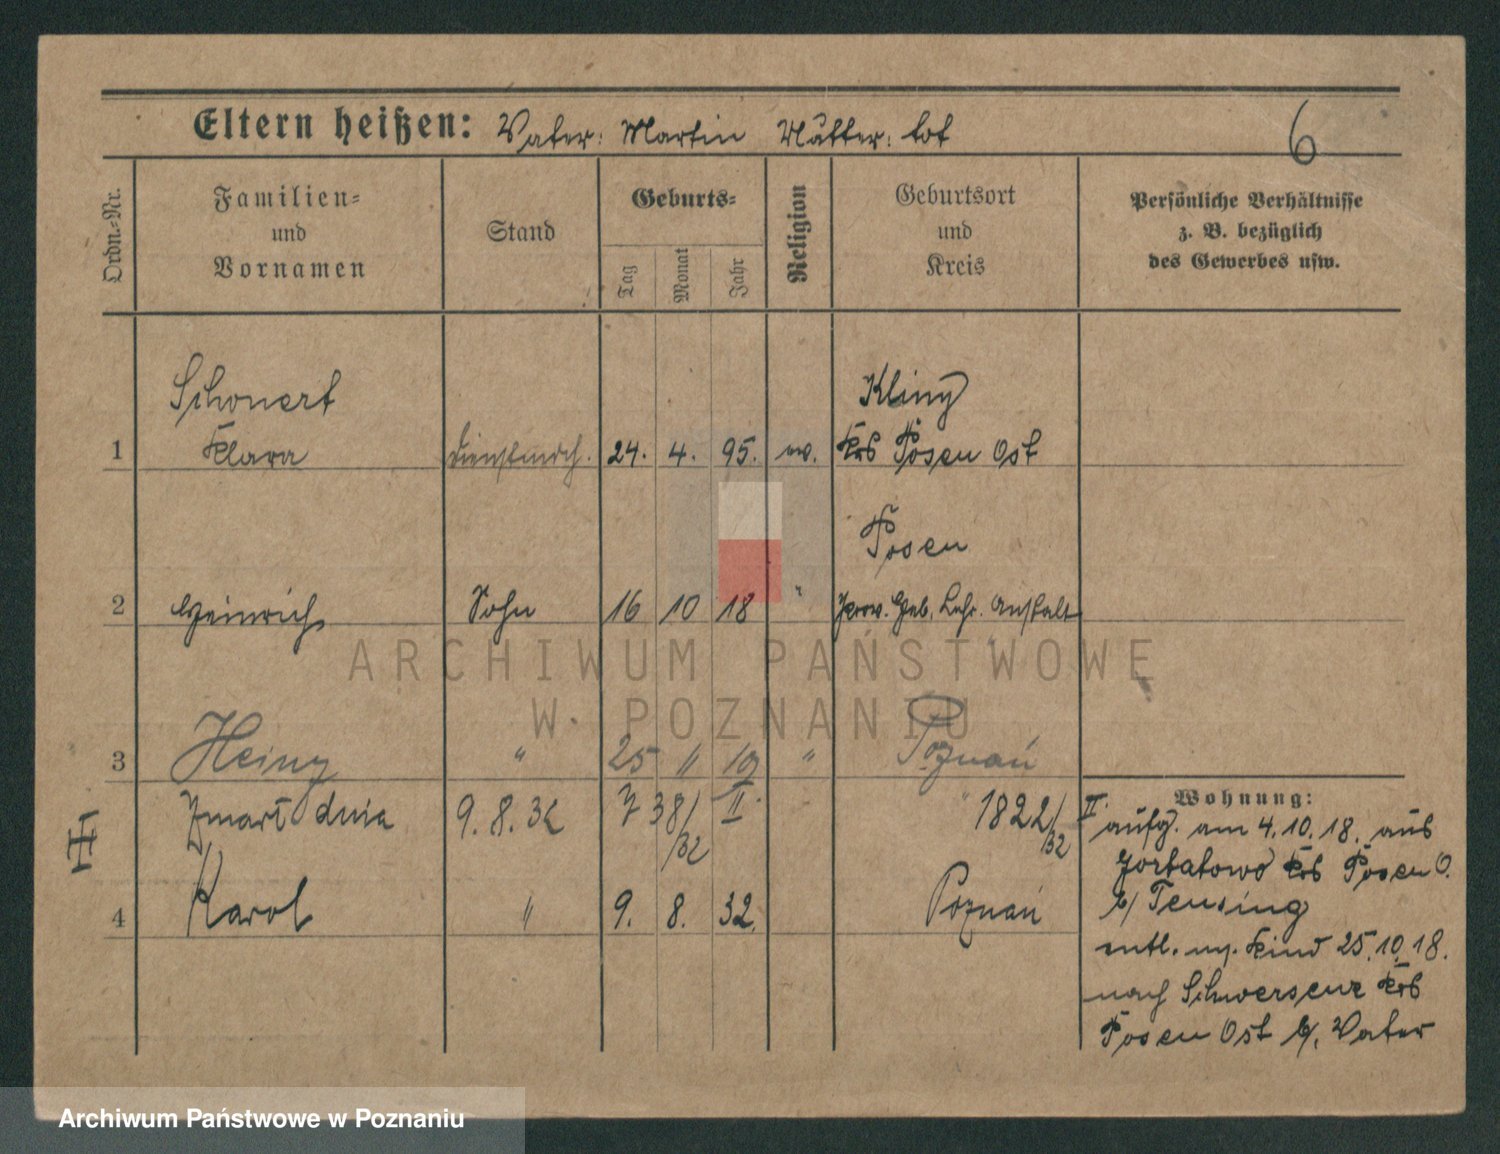 Eltern heißen: Vater: Martin Mutter: tot
6
Ordn.-Nr.
Familien-
und
Vornamen
Stand
Geburts-
Tag
Monat
Jahr
Religion
Geburtsort
und
Kreis
Persönliche Verhältnisse
z. B. bezüglich
des Gewerbes usw.
Schonert
Kliny
1 Klara Dienstmdch. 24. 4. 95. ev. Krs Posen Ost
Posen
2 Heinrich Sohn 16 10 18 " Prov. Heb. Lehr. Anstalt
3 Heiny " 25 " 19 " Poznań
Zmarł dnia 9. 8. 32 738/32 II. 1822/32 II
4 Karol " 9. 8. 32. Poznań
Wohnung:
aufg. am 4.10.18. aus
Gortatowo Krs Posen O.
b/ Tensing
entl. m. Kind 25.10.18.
nach Schwersenz Krs
Posen Ost b/. Vater
ARCHIWUM PAŃSTWOWE
W POZNANIU
Archiwum Państwowe w Poznaniu